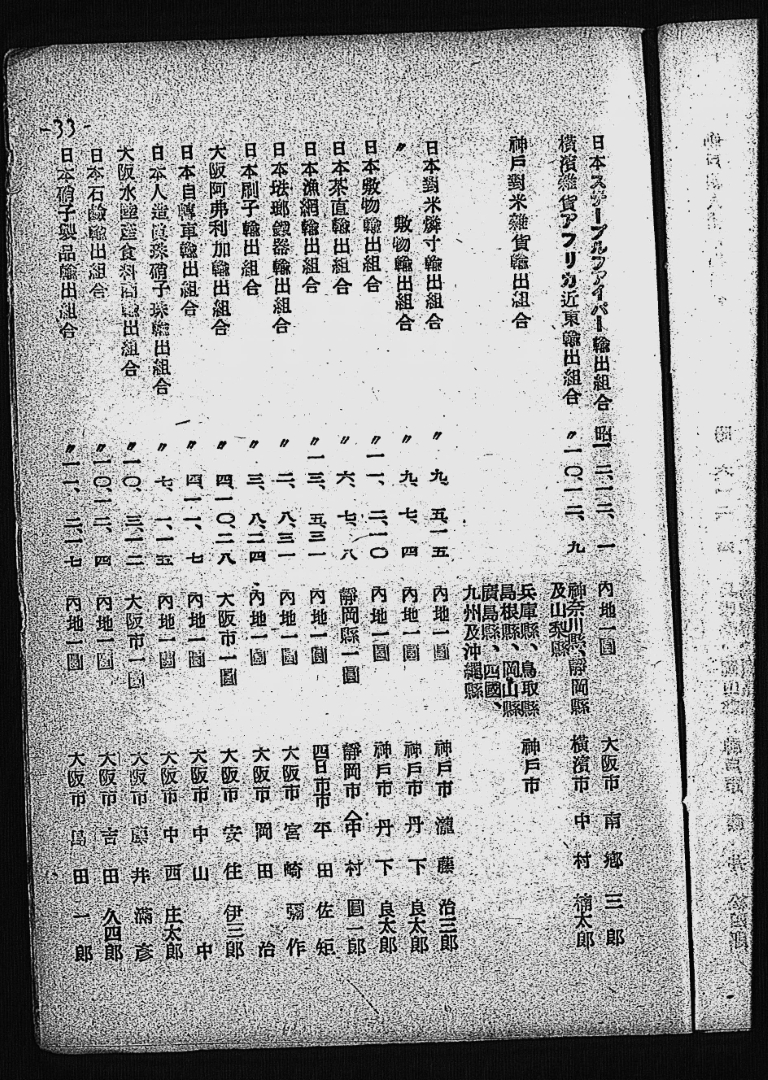 -33-
日本ステープルファイバー輸出組合 昭一二、一二、一 內地一圓 大阪市 南鄕三郎
橫濱雜貨アフリカ近東輸出組合 〃一〇、一二、九 神奈川縣、靜岡縣及山梨縣 橫濱市 中村 太郎
神戶對米雜貨輸出組合 兵庫縣、鳥取縣島根縣、岡山縣廣島縣、四國、九州及沖繩縣 神戶市
日本對米燐寸輸出組合 〃九、五、一五 內地一圓 神戶市 瀧藤治三郎
〃 敷物輸出組合 〃九、七、四 內地一圓 神戶市 丹下良太郎
日本敷物輸出組合 〃一一、二、一〇 內地一圓 神戶市 丹下良太郎
日本茶直輸出組合 〃六、七、八 靜岡縣一圓 靜岡市 中村圓一郎
日本漁網輸出組合 〃一三、五、三一 內地一圓 四日市市 平田佐矩
日本琺瑯鐵器輸出組合 〃二、八、三一 內地一圓 大阪市 宮崎彌作
日本刷子輸出組合 〃三、八、二四 內地一圓 大阪市 岡田治
大阪阿弗利加輸出組合 〃四、一〇、二八 大阪市一圓 大阪市 安住伊三郎
日本自轉車輸出組合 〃四、一一、七 內地一圓 大阪市 中山中
日本人造眞珠硝子珠輸出組合 〃七、一、一五 內地一圓 大阪市 中西庄太郎
大阪水產食料品輸出組合 〃一〇、三、一二 大阪市一圓 大阪市 井滿彥
日本石鹼輸出組合 〃一〇、一二、四 內地一圓 大阪市 吉田久四郎
日本硝子製品輸出組合 〃一一、二、一七 內地一圓 大阪市 島田一郎